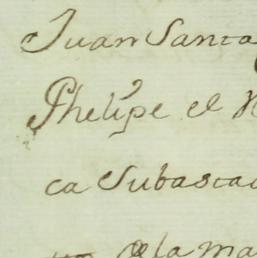 Juan Santa
Phelipe el
ca Subasta
de la ma